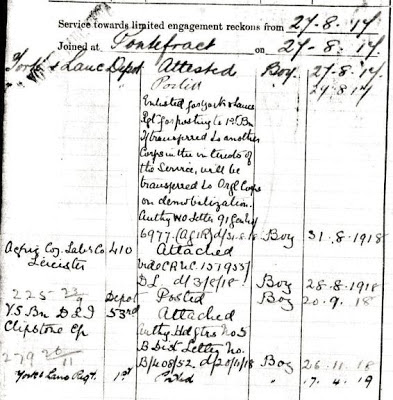 Service towards limited engagement reckons from 27-8-17
Joined at Pontefract on 27-8-17.
York & Lanc Depot Attested Boy 27-8-17.
Posted 27.8.17
Enlisted for York & Lancs
Rgt for posting to 1st Bn
If transferred to another
Corps in the interests of
the Service, will be
transferred to Orgl Corps
on demobilization.
Authy WO Letter 91/Genl
6977. (AG1R) d/31-8-18 Boy 31.8.1918
Agric Coy. Lab: Co 410 Attached
Leicester
D/ d/3/9/18 Boy 28-8-1918
225 23/9 Depot Posted Boy 20.9.18
Y.S Bn D.L.I 53rd Attached
Clipstone Cp Authy Hdqtrs No 5
B Dist Letter No.
279 26/11 B/408/52. d/20/11/18 Boy 26.11.18
York & Lancs Regt. 1st Posted " 17.4.19